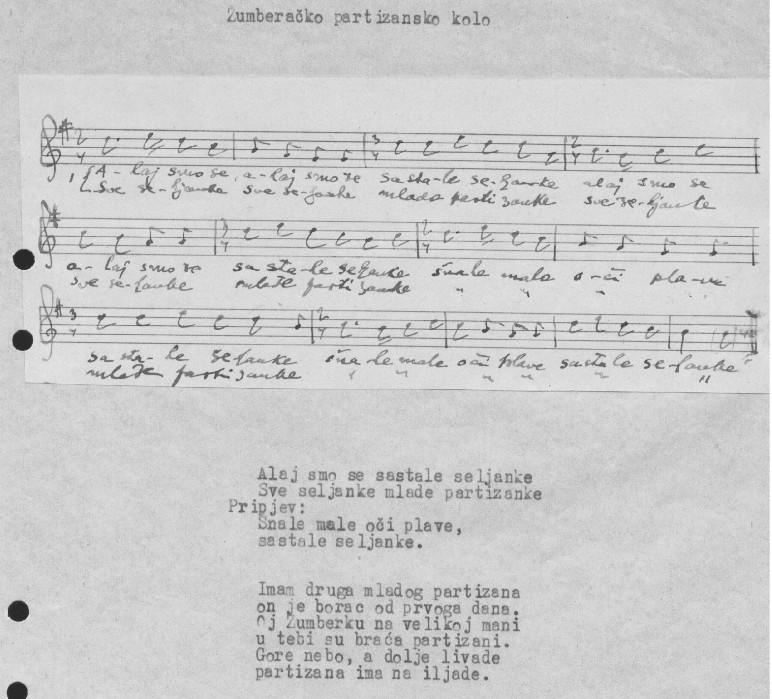 Žumberačko partizansko kolo
A-laj smo se, a-laj smo se sasta-le se-ljanke alaj smo se
Sve se-ljanke sve se-ljanke mlade partizanke sve se-ljanke
a-laj smo se sasta-le seljanke šnale male o-či pla-ve
sve se-ljanke mlade partizanke " " "
sasta-le seljanke šna-le male oči plave sastale se-ljanke
mlade partizanke " " " " " "
Alaj smo se sastale seljanke
Sve seljanke mlade partizanke
Pripjev:
Šnale male oči plave,
sastale seljanke.
Imam druga mladog partizana
on je borac od prvoga dana.
Oj Žumberku na velikoj mani
u tebi su braća partizani.
Gore nebo, a dolje livade
partizana ima na iljade.